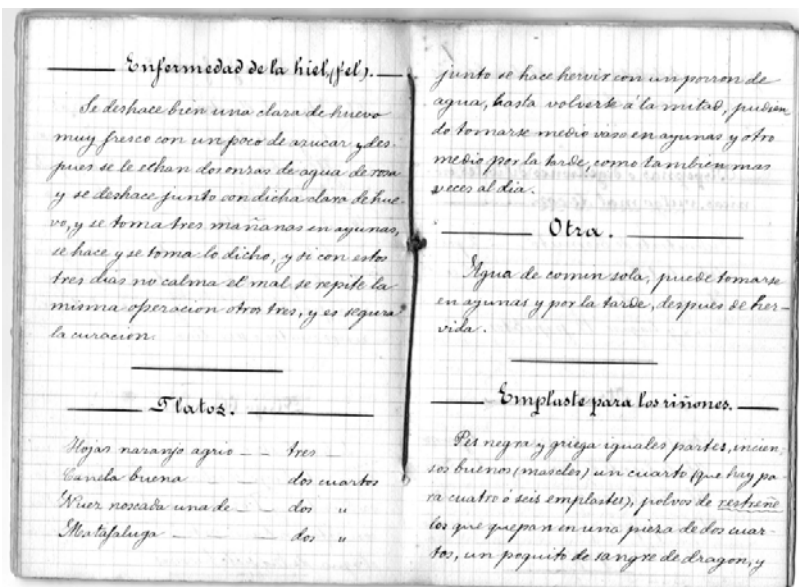 Enfermedad de la hiel, (fel).
Se deshace bien una clara de huevo
muy fresco con un poco de azucar y des-
pues se le echan dos onzas de agua de rosa
y se deshace junto con dicha clara de hue-
vo, y se toma tres mañanas en ayunas,
se hace y se toma lo dicho, y si con estos
tres dias no calma el mal se repite la
misma operacion otros tres, y es segura
la curacion.
Flatos.
Hojas naranjo agrio tres
Canela buena dos cuartos
Nuez noscada una de dos "
Matafaluga dos "
junto se hace hervir con un porron de
agua, hasta volverse á la mitad, pudien-
do tomarse medio vaso en ayunas y otro
medio por la tarde, como tambien mas
veces al dia.
Otra.
Agua de comin sola, puede tomarse
en ayunas y por la tarde, despues de her-
vida.
Emplaste para los riñones.
Pes negra y griega iguales partes, incien-
sos buenos (mascles) un cuarto (que hay pa-
ra cuatro ó seis emplastes), polvos de restreñe
los que quepan en una pieza de dos cuar-
tos, un poquito de sangre de dragon, y